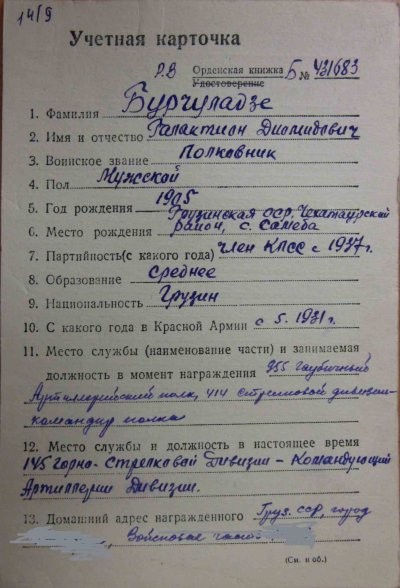 14/9
Учетная карточка
Р.В Орденская книжка Б № 431683
Удостоверение
1. Фамилия Бурчуладзе
2. Имя и отчество Галактион Диомидович
3. Воинское звание Полковник
4. Пол Мужской
5. Год рождения 1905
Грузинская сср, Чохатаурский
6. Место рождения район, с. Самеба
7. Партийность(с какого года) член КПСС с 1937г.
8. Образование Среднее
9. Национальность Грузин
10. С какого года в Красной Армии с 5. 1931г.
11. Место службы (наименование части) и занимаемая
должность в момент награждения 955 гаубичный
Артиллерийский полк, 414 стрелковой дивизии-
командир полка
12. Место службы и должность в настоящее время
145 Горно-Стрелковой Дивизии - Командующий
Артиллерии Дивизии.
13. Домашний адрес награжденного Груз. сср, город
Войсковая часть
(См. н об.)